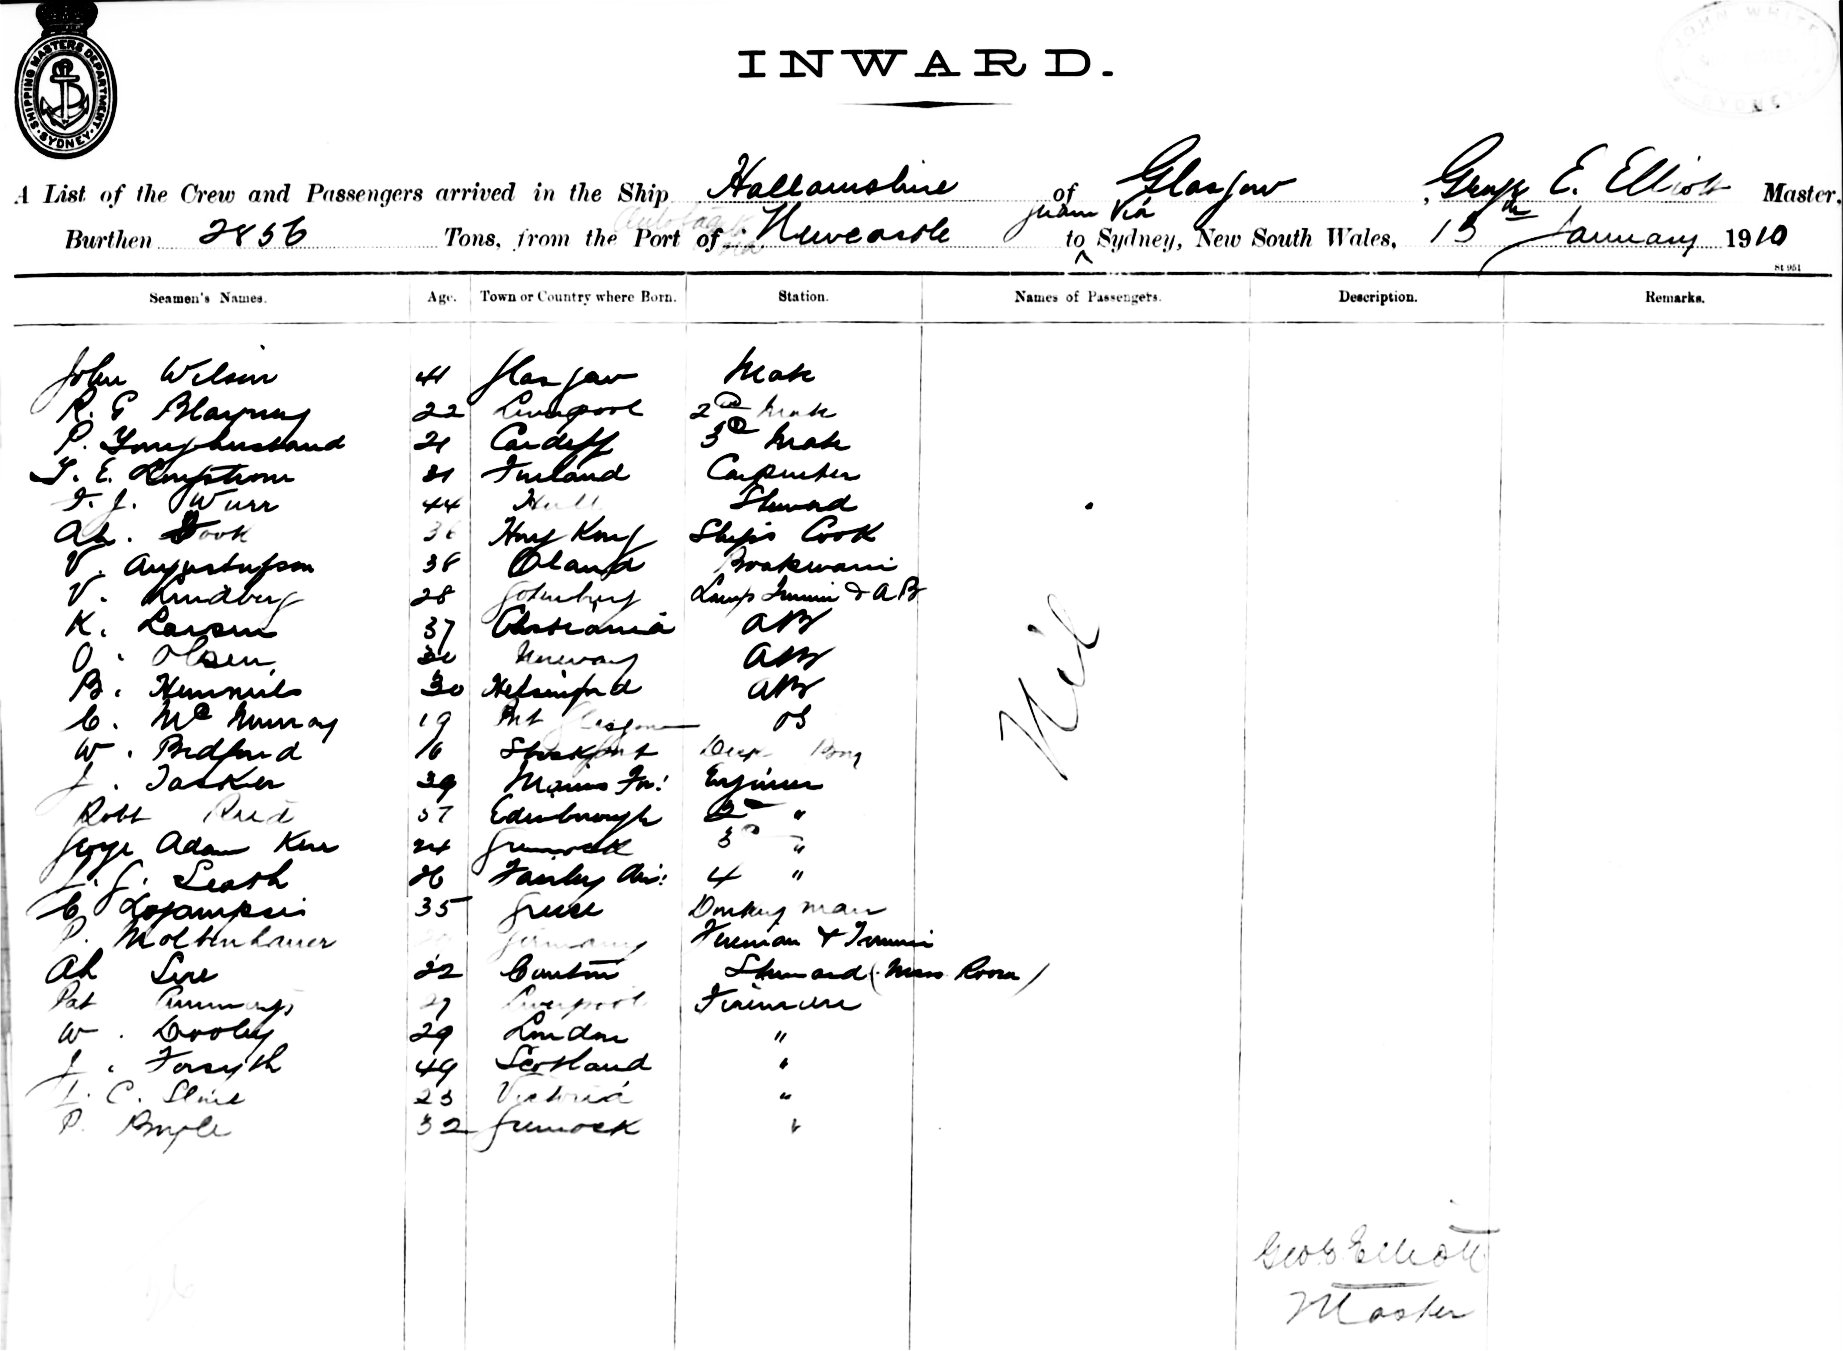 SHIPPING MASTERS DEPARTMENT
SYDNEY
JOHN WHITE
SYDNEY
INWARD.
A List of the Crew and Passengers arrived in the Ship Hallamshire of Glasgow, George E. Elliott Master,
Burthen 2856 Tons, from the Port of Newcastle to Sydney, New South Wales, 15th January 1910
via
St 951
Seamen's Names. Age. Town or Country where Born. Station. Names of Passengers. Description. Remarks.
John Wilson 41 Glasgow Mate
R. G 22 Liverpool 2nd Mate
P. Younghusband 21 Cardiff 3d Mate
E. 31 Finland Carpenter
F. J. Wurr 44 Hull Steward
Ah. Fook 36 Hong Kong Ships Cook
V. Augustufson 38 Oland
V. Lindberg 28 Gotenburg Lamp Trimmer & AB
K. Larsen 37 AB
O. Olsen Norway AB
B. 30 Helsingford AB
C. Mc Murray 19 Pt Glasgow OS
W. Bedford 16 Stockport Deck Boy
J. Tasker 39 Engineer
Robt Reid 37 Edinborough 2nd "
George Adam Kerr 24 Greenock 3rd "
J. Leash 26 Fairley 4 "
C 35 Greece Donkey man
P. Moltenhauer Germany Fireman & Trimmer
Ah 22 Canton Steward (Mess Room)
Pat Cummings 27 Liverpool Fireman
W. Dooley 29 London "
J. Forsyth 49 Scotland "
C. 23 Victoria "
P. Boyle 32 Greenock "
Nil
Geo E Elliott
Master